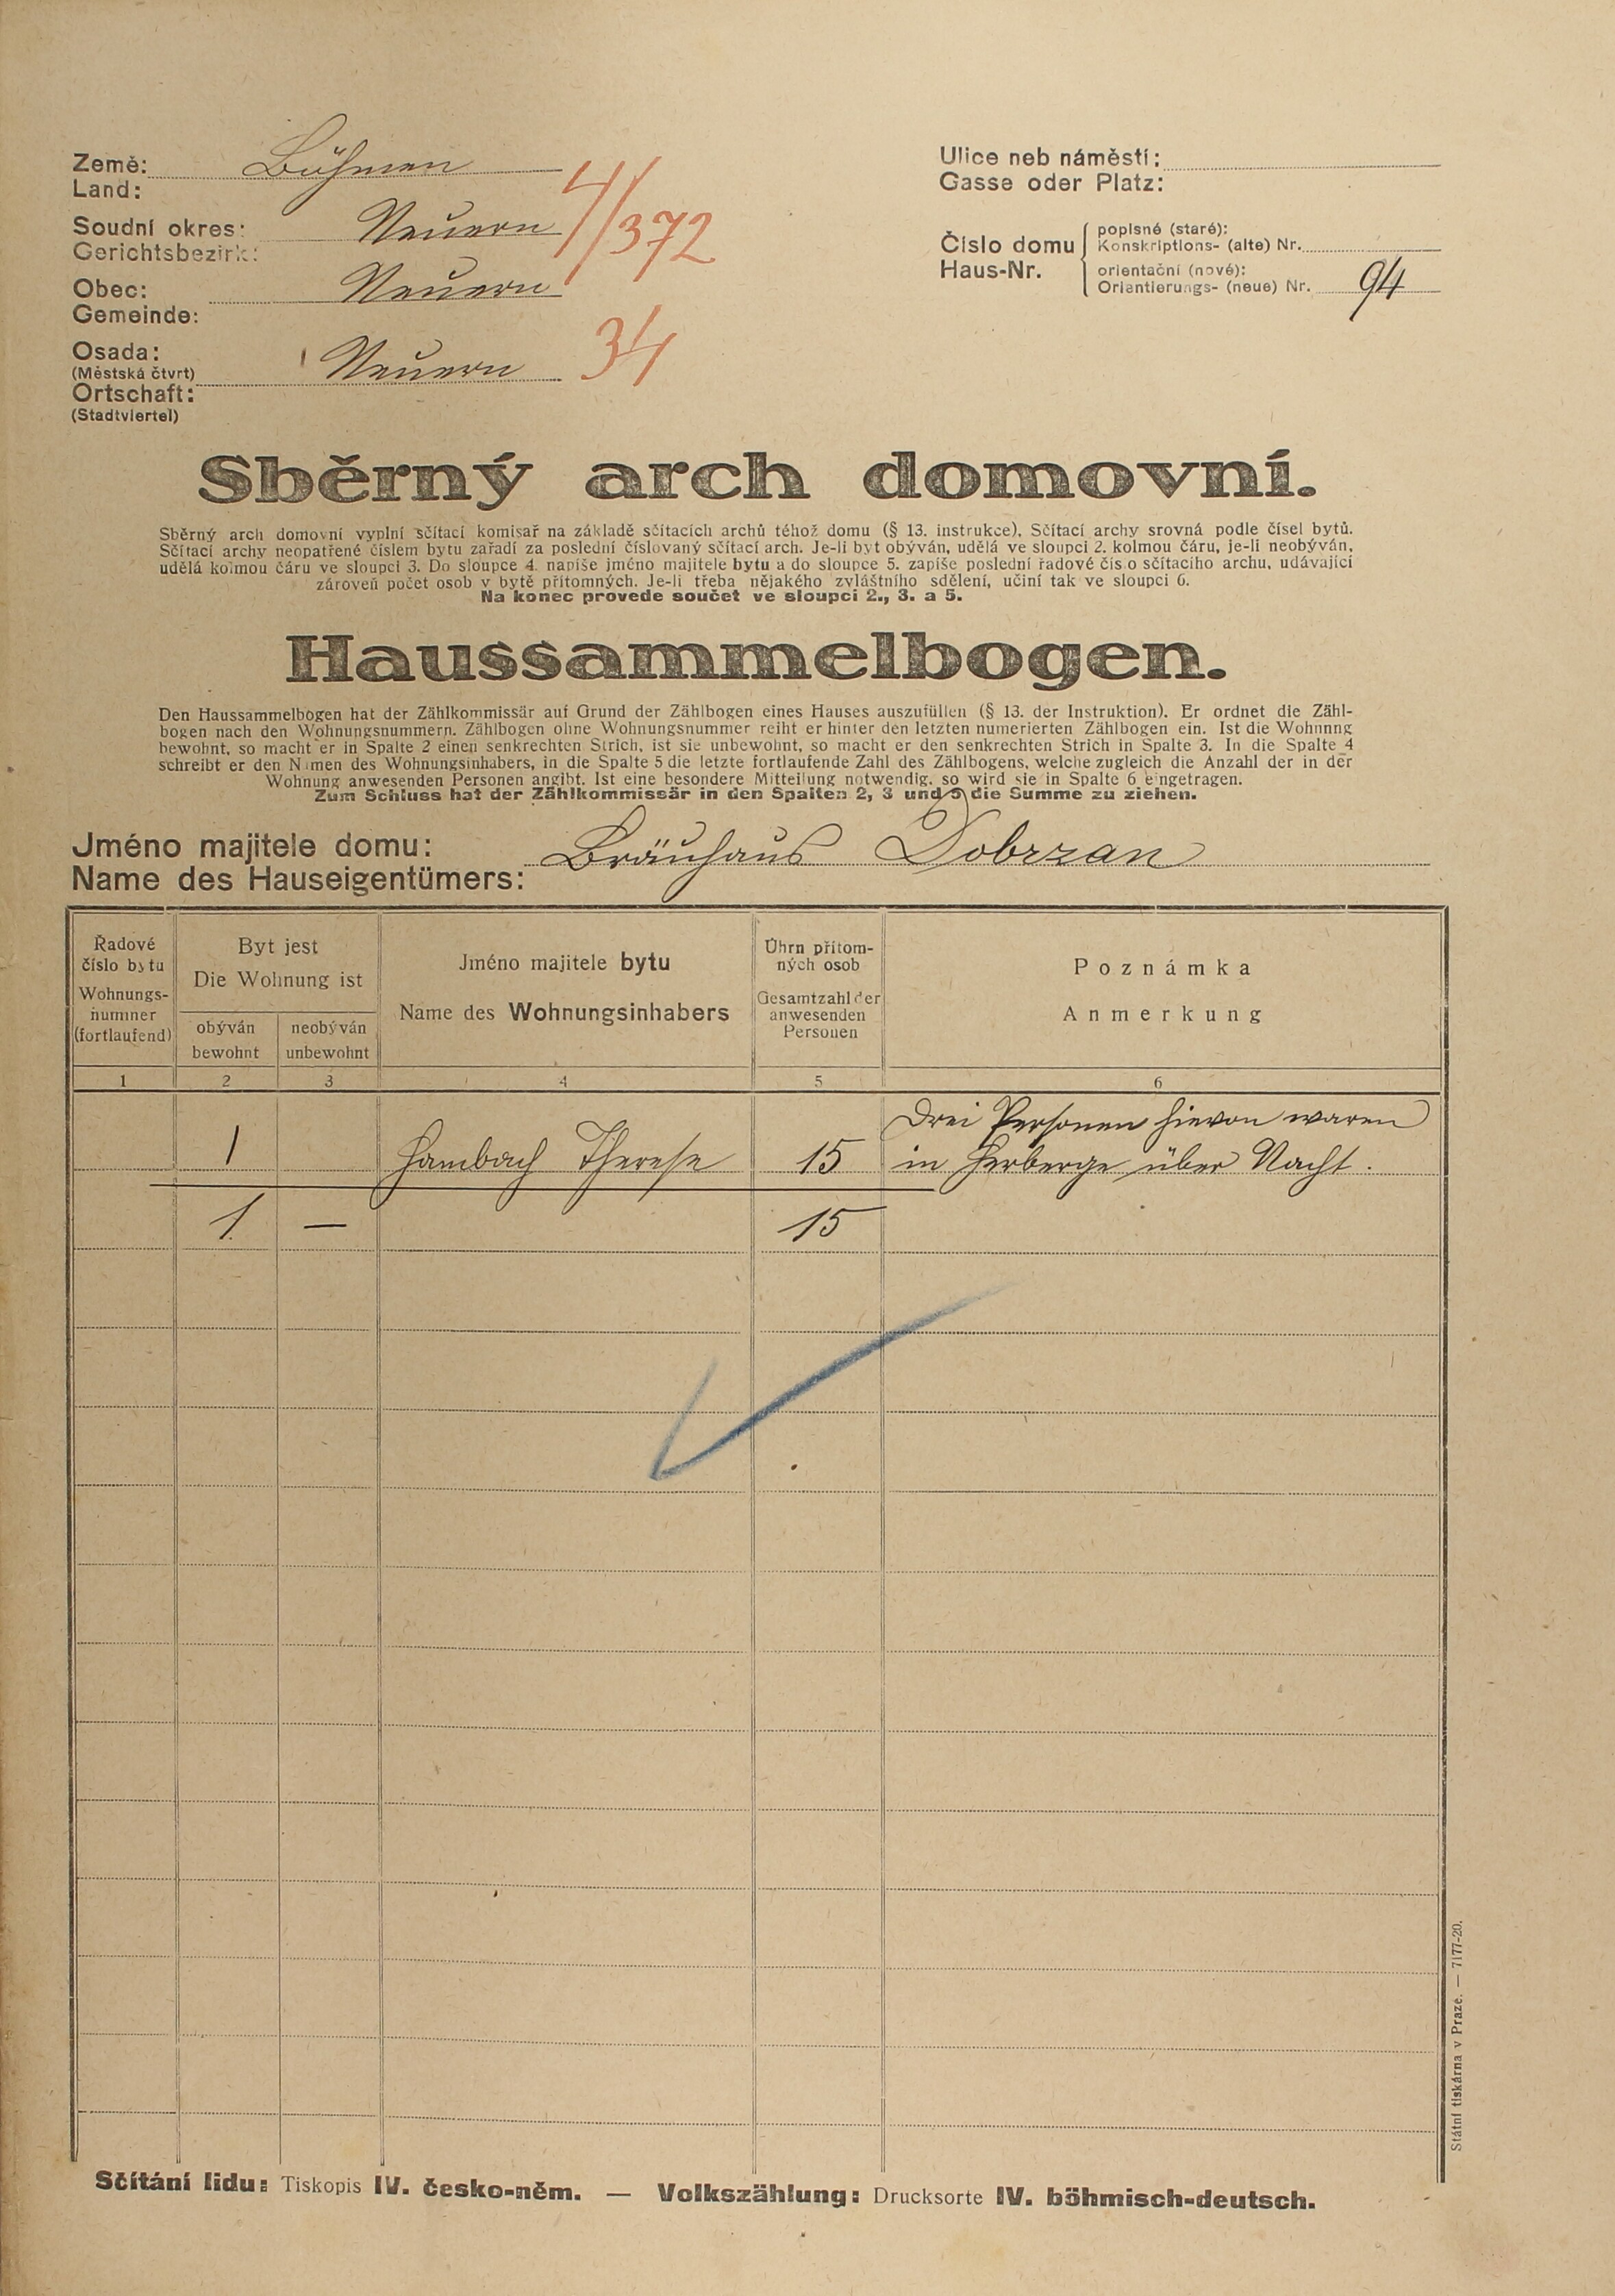 Země: Böhmen
Land:
Soudní okres: Neuern
Gerichtsbezirk:
4/372
Obec: Neuern
Gemeinde:
Osada: Neuern 34
(Městská čtvrt)
Ortschaft:
(Stadtviertel)
Ulice neb náměstí:
Gasse oder Platz:
Číslo domu
Haus-Nr.
popisné (staré):
Konskriptions- (alte) Nr.
orientační (nové):
Orientierungs- (neue) Nr. 94
Sběrný arch domovní.
Sběrný arch domovní vyplní sčítací komisař na základě sčítacích archů téhož domu (§ 13. instrukce). Sčítací archy srovná podle čísel bytů.
Sčítací archy neopatřené číslem bytu zařadí za poslední číslovaný sčítací arch. Je-li byt obýván, udělá ve sloupci 2. kolmou čáru, je-li neobýván,
udělá kolmou čáru ve sloupci 3. Do sloupce 4. napíše jméno majitele bytu a do sloupce 5. zapíše poslední řadové čís o sčítacího archu, udávající
zároveň počet osob v bytě přítomných. Je-li třeba nějakého zvláštního sdělení, učiní tak ve sloupci 6.
Na konec provede součet ve sloupci 2., 3. a 5.
Haussammelbogen.
Den Haussammelbogen hat der Zählkommissär auf Grund der Zählbogen eines Hauses auszufüllen (§ 13. der Instruktion). Er ordnet die Zähl-
bogen nach den Wohnungsnummern. Zählbogen ohne Wohnungsnummer reiht er hinter den letzten numerierten Zählbogen ein. Ist die Wohnnng
bewohnt, so macht er in Spalte 2 einen senkrechten Strich, ist sie unbewohnt, so macht er den senkrechten Strich in Spalte 3. In die Spalte 4
schreibt er den Namen des Wohnungsinhabers, in die Spalte 5 die letzte fortlaufende Zahl des Zählbogens, welche zugleich die Anzahl der in der
Wohnung anwesenden Personen angibt. Ist eine besondere Mitteilung notwendig, so wird sie in Spalte 6 eingetragen.
Zum Schluss hat der Zählkommissär in den Spalten 2, 3 und 5 die Summe zu ziehen.
Jméno majitele domu: Bräuhaus Dobrzan
Name des Hauseigentümers:
Řadové
číslo bytu
Wohnungs-
nummer
(fortlaufend)
Byt jest
Die Wohnung ist
obýván
bewohnt
neobýván
unbewohnt
Jméno majitele bytu
Name des Wohnungsinhabers
Úhrn přítom-
ných osob
Gesamtzahl der
anwesenden
Personen
Poznámka
Anmerkung
1 2 3 4 5 6
Drei Personen hievon waren
1 Hambach Therese 15 in Herberge über Nacht.
1 — 15
Státní tiskárna v Praze. — 7177-20.
Sčítání lidu: Tiskopis IV. česko-něm. — Volkszählung: Drucksorte IV. böhmisch-deutsch.